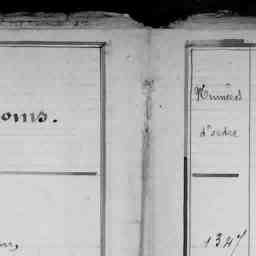 oms.
Numéros
d'ordre
1347